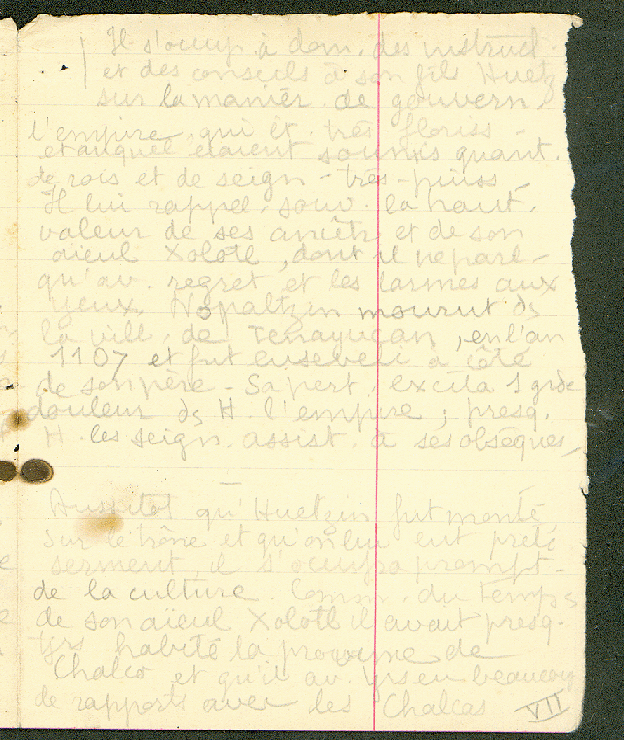 Il s'occup. à donn. des instruct.
et des conseils à son fils Huetz
sur la manièr. de gouvern.
l'empire, qui ét. très floriss.
et auquel étaient soumis quant.
de rois et de seign. très-puiss
Il lui rappel. souv. la haut.
valeur de ses ancêtr. et de son
aïeul Xolotl, dont il ne parl-
qu'av. regret et les larmes aux
yeux. Nopaltzin mourut ds
la vill. de Tenayucan, en l'an
1107 et fut enseveli à côté
de son père - Sa pert. excita 1 grde
douleur ds tt. l'empire; presq.
tt. les seign. assist. à ses obsèques
Aussitot qu'Huetzin fut monté
sur le trône et qu'on lui eut prêté
serment, il s'occupa prompt-
de la culture. Comm. du temps
de son aïeul Xolotl il avait presq.
tjrs habité la provinne de
Chalco et qu'il av. tjrs eu beaucoup
de rapports avec les Chalcas
VII